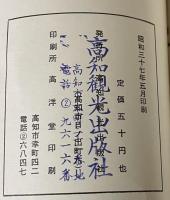 昭和三十七年五月印刷
定価五十円也
高知観光出版社
高知市日ノ出町
電話②九六一六番
印刷所 高洋堂印刷
高知市幸町四二
電話②六八四七